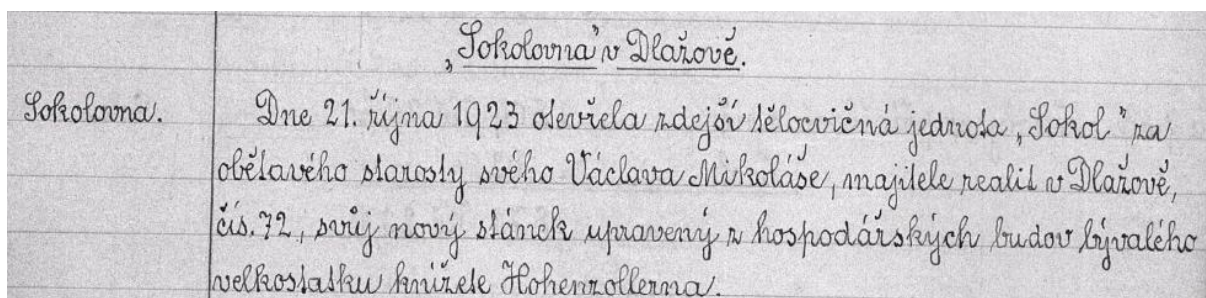 „Sokolovna” v Dlažově.
Sokolovna.
Dne 21. října 1923 otevřela zdejší tělocvičná jednota „Sokol” za
obětavého starosty svého Václava Mikoláše, majitele realit v Dlažově,
čís. 72, svůj nový stánek upravený z hospodářských budov bývalého
velkostatku knížete Hohenzollerna.